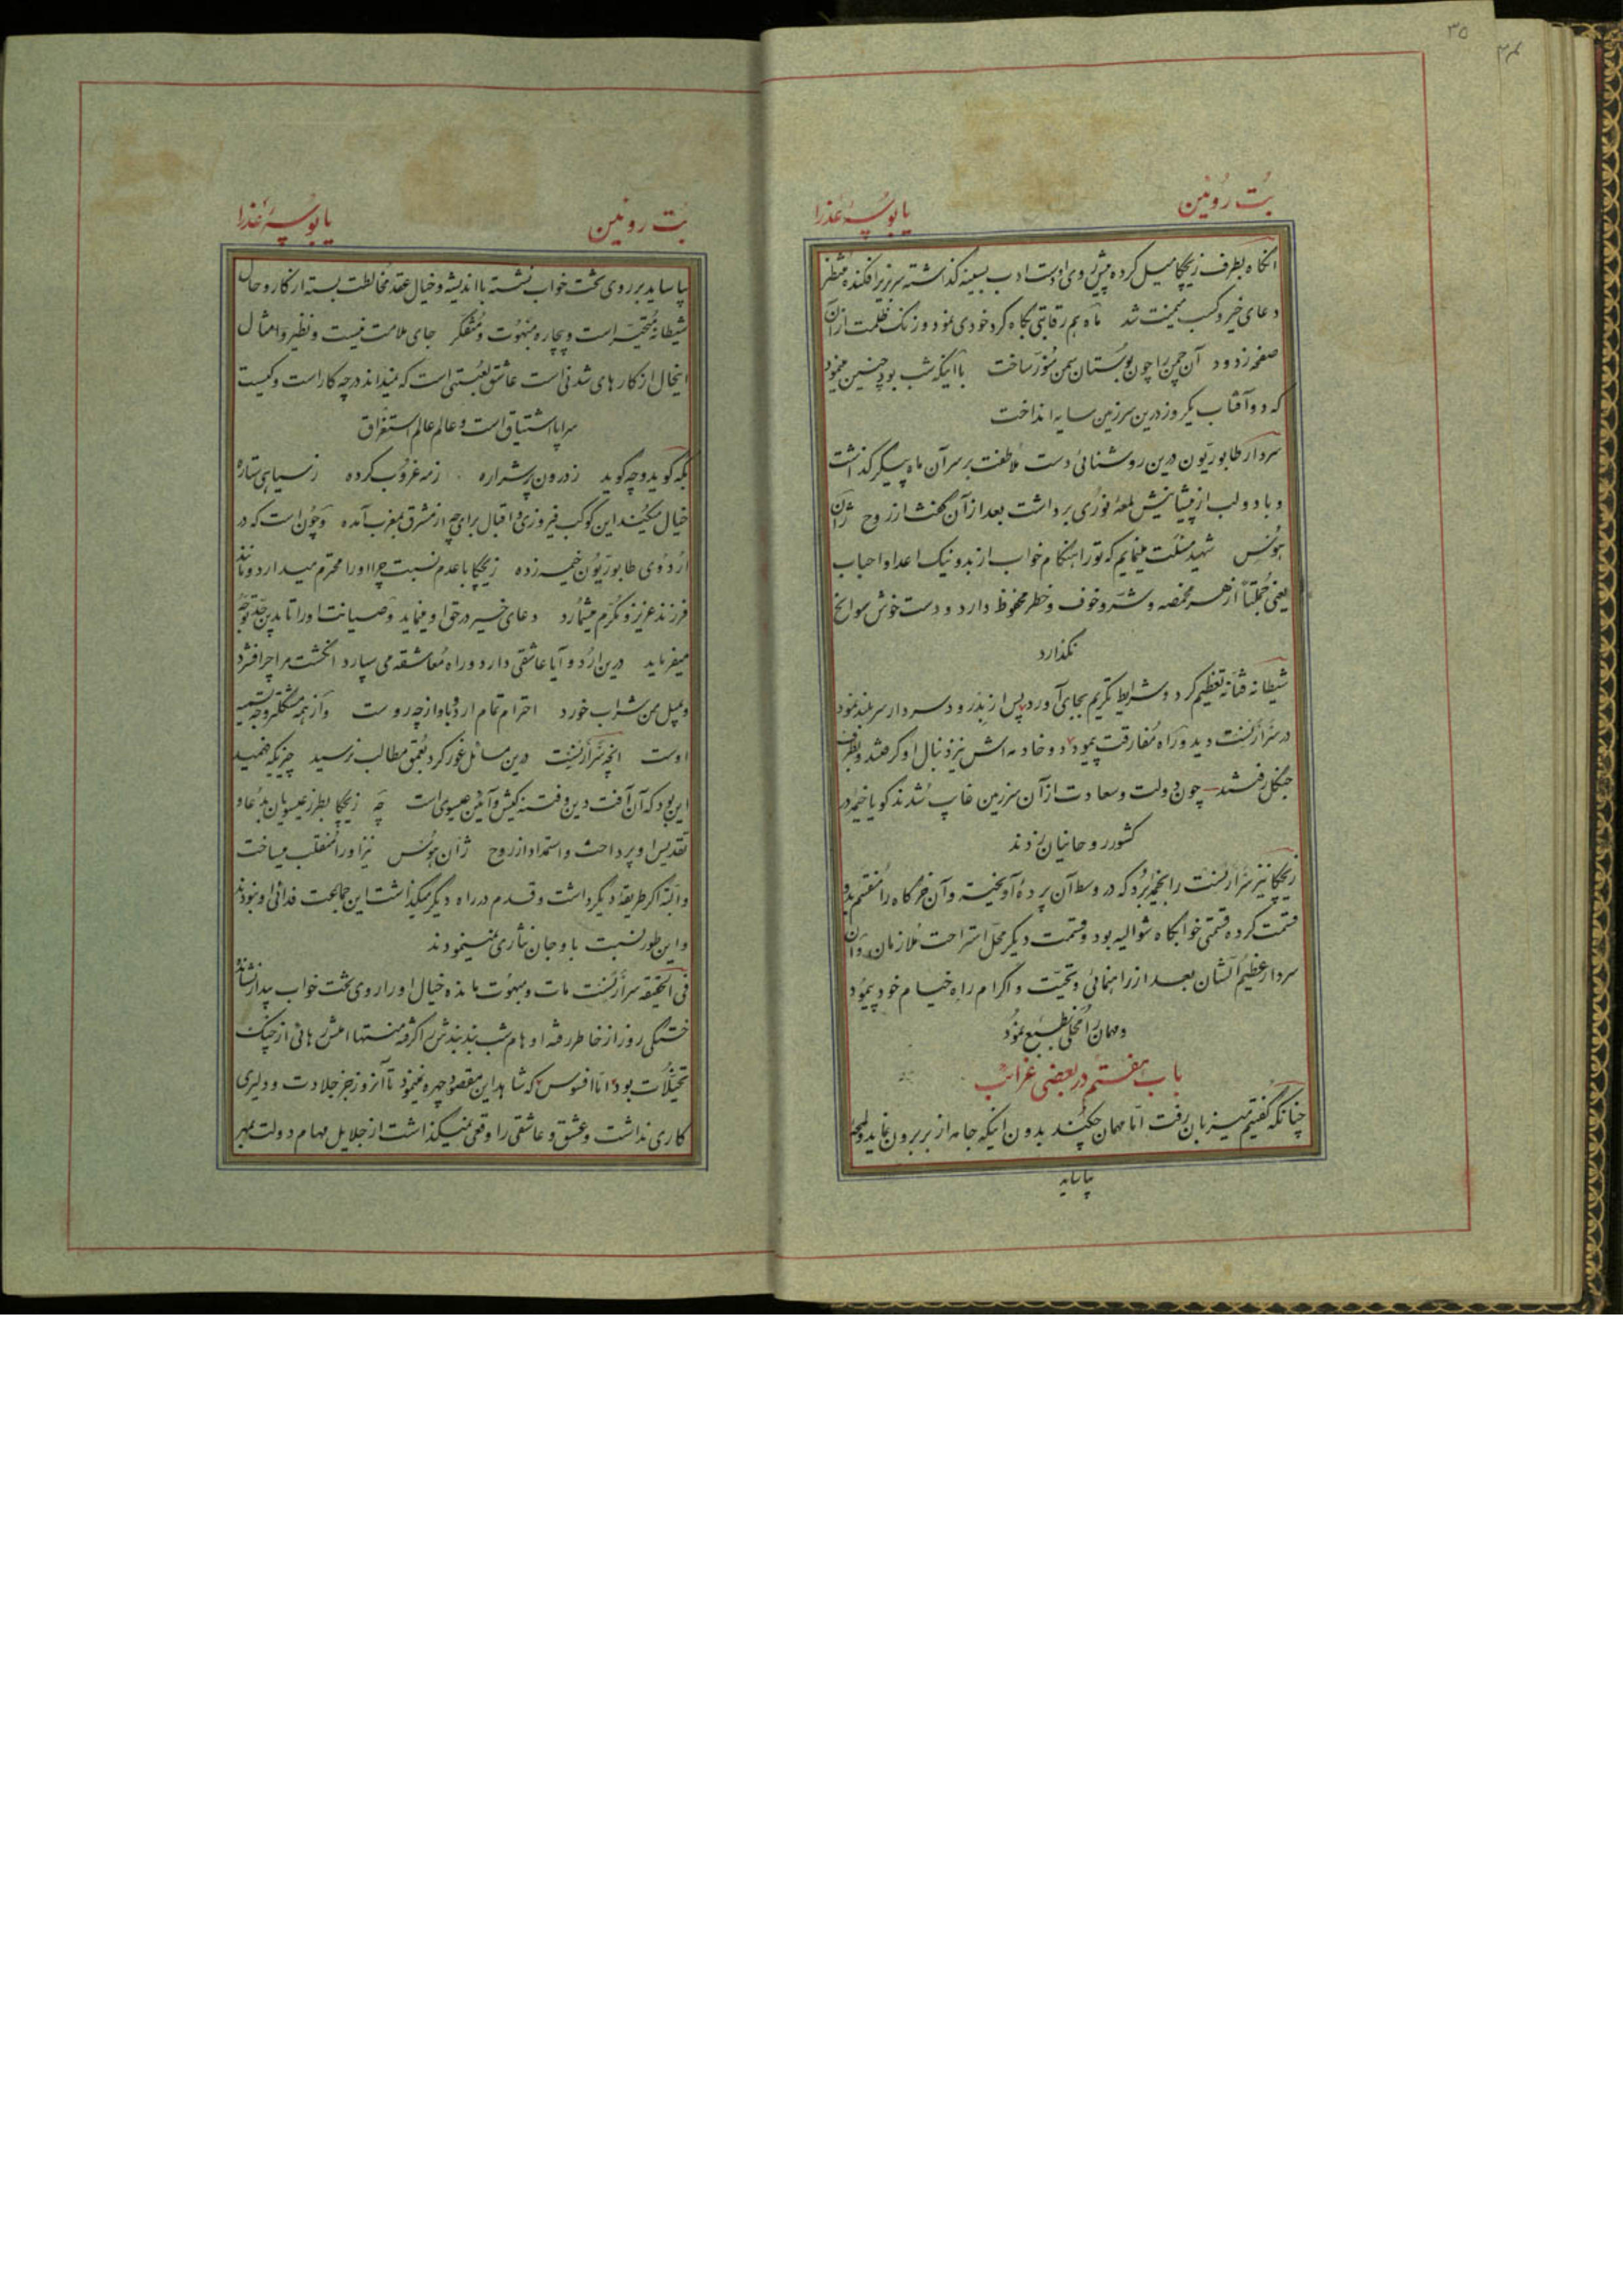 ۳۵
بُت رویین یا بوسهٔ عذرا
آنگاه بطرف زیچکا میل کرده پیش روی او دست ادب بسینه گذاشته سر بزیر افکنده منتظر
دعای خیر و کسب میمنت شد ماه هم رقابتی نگاه کرد خودی نمود و زنگ ظلمت از آن
صفحه زدود آن چمن را چون بوستان سمن منور ساخت با آنکه شب بود چنین مینمود
که دو آفتاب یکروز درین سرزمین سایه انداخت
سردار طابوریون درین روشنائی دست ملاطفت بر سر آن ماه پیکر گذاشت
و با دو لب از پیشانیش لمعهٔ نوری برداشت بعد از آن گفت از روح ژان
هوُس شهید مسئلت مینمایم که تو را هنگام خواب از بد و نیک اعدا و احباب
یعنی جملتاً از هر مخمصه و شر و خوف و خطر محفوظ دارد و دست خوش سوانح
نگذارد
شیطانه فتانه تعظیم کرد و شرایط تکریم بجای آورد پس از بدرود سردار سر بلند نمود
در سرآرنست دید و راه مفارقت پیمود دو خادمه اش نیز دنبال او گرفتند و بطرف
جنگل رفتند چون دولت و سعادت از آن سرزمین غایب شدند گویا خیمه در
کشور روحانیان زدند
زیچکا نیز سرآرنست را بخیمه برد که در وسط آن پردهٔ آویخته و آن خرگاه را منقسم بدو
قسمت کرده قسمتی خوابگاه شوالیه بود و قسمت دیگر محل استراحت ملازمان و آن
سردار عظیم الشان بعد از راهنمائی و تحیت و اکرام راه خیام خود پیمود
و مهمان را مخلی بطبع نمود
باب هفتم در بعضی غرائب
چنانکه گفتیم میزبان رفت اما مهمان چکند بدون اینکه جامه از بر برون نماید و لمحهٔ
بیاساید
بُت رویین یا بوسهٔ عذرا
بیاساید بر روی تخت خواب نشسته با اندیشه و خیال عقد مخالطت بسته از کار و حال
شیطانه متحیر است و بیچاره مبهوت و متفکر جای ملامت نیست و نظیر و امثال
اینحال از کارهای شدنی است عاشق لعبتی است که نمیداند در چه کار است و کیست
سراپا اشتیاق است و عالم عالم استغراق
بکه گوید و چه گوید ز درون پر شراره ز مه غروب کرده ز سیاهی ستاره
خیال میکند این کوکب فیروزی و اقبال برای چه از مشرق بمغرب آمده و چون است که در
اردوی طابوریون خیمه زده زیچکا با عدم نسبت چرا او را محترم میدارد و مانند
فرزند عزیز و مکرم میشمارد دعای خیر در حق او مینماید و صیانت او را تا بدین حد توجه
میفرماید درین اردو آیا عاشقی دارد و راه معاشقه می سپارد انگشت مرا چرا فشرد
و بمیل من شراب خورد احترام تمام اردو باو از چه روست و از همه مشکلتر وجه تسمیه
اوست آنچه سرآرنست درین مسائل غور کرد بعمق مطالب نرسید چیزیکه فهمید
این بود که آن آفت دین و فتنه کیش و آئین عیسوی است چه زیچکا بطرز عیسویان بدعا و
تقدیس او پرداخت و استمداد از روح ژان هوُس نیز او را منقلب میساخت
و البته اگر طریقهٔ دیگر داشت و قدم در راه دیگر میگذاشت این جماعت فدائی او نبودند
و این طور نسبت باو جان نثاری نمینمودند
فی الحقیقه سرآرنست مات و مبهوت مانده خیال او را روی تخت خواب بیدار نشانده
خستگی روز از خاطر رفته اوهام شب بند بندش را گرفته منتها املش رهائی از چنگ
تخیلات بود اما افسوس که شاهد این مقصود چهره نمینمود تا آنروز جز جلادت و دلیری
کاری نداشت و عشق و عاشقی را وقعی نمیگذاشت از جلایل مهام دولت بهر